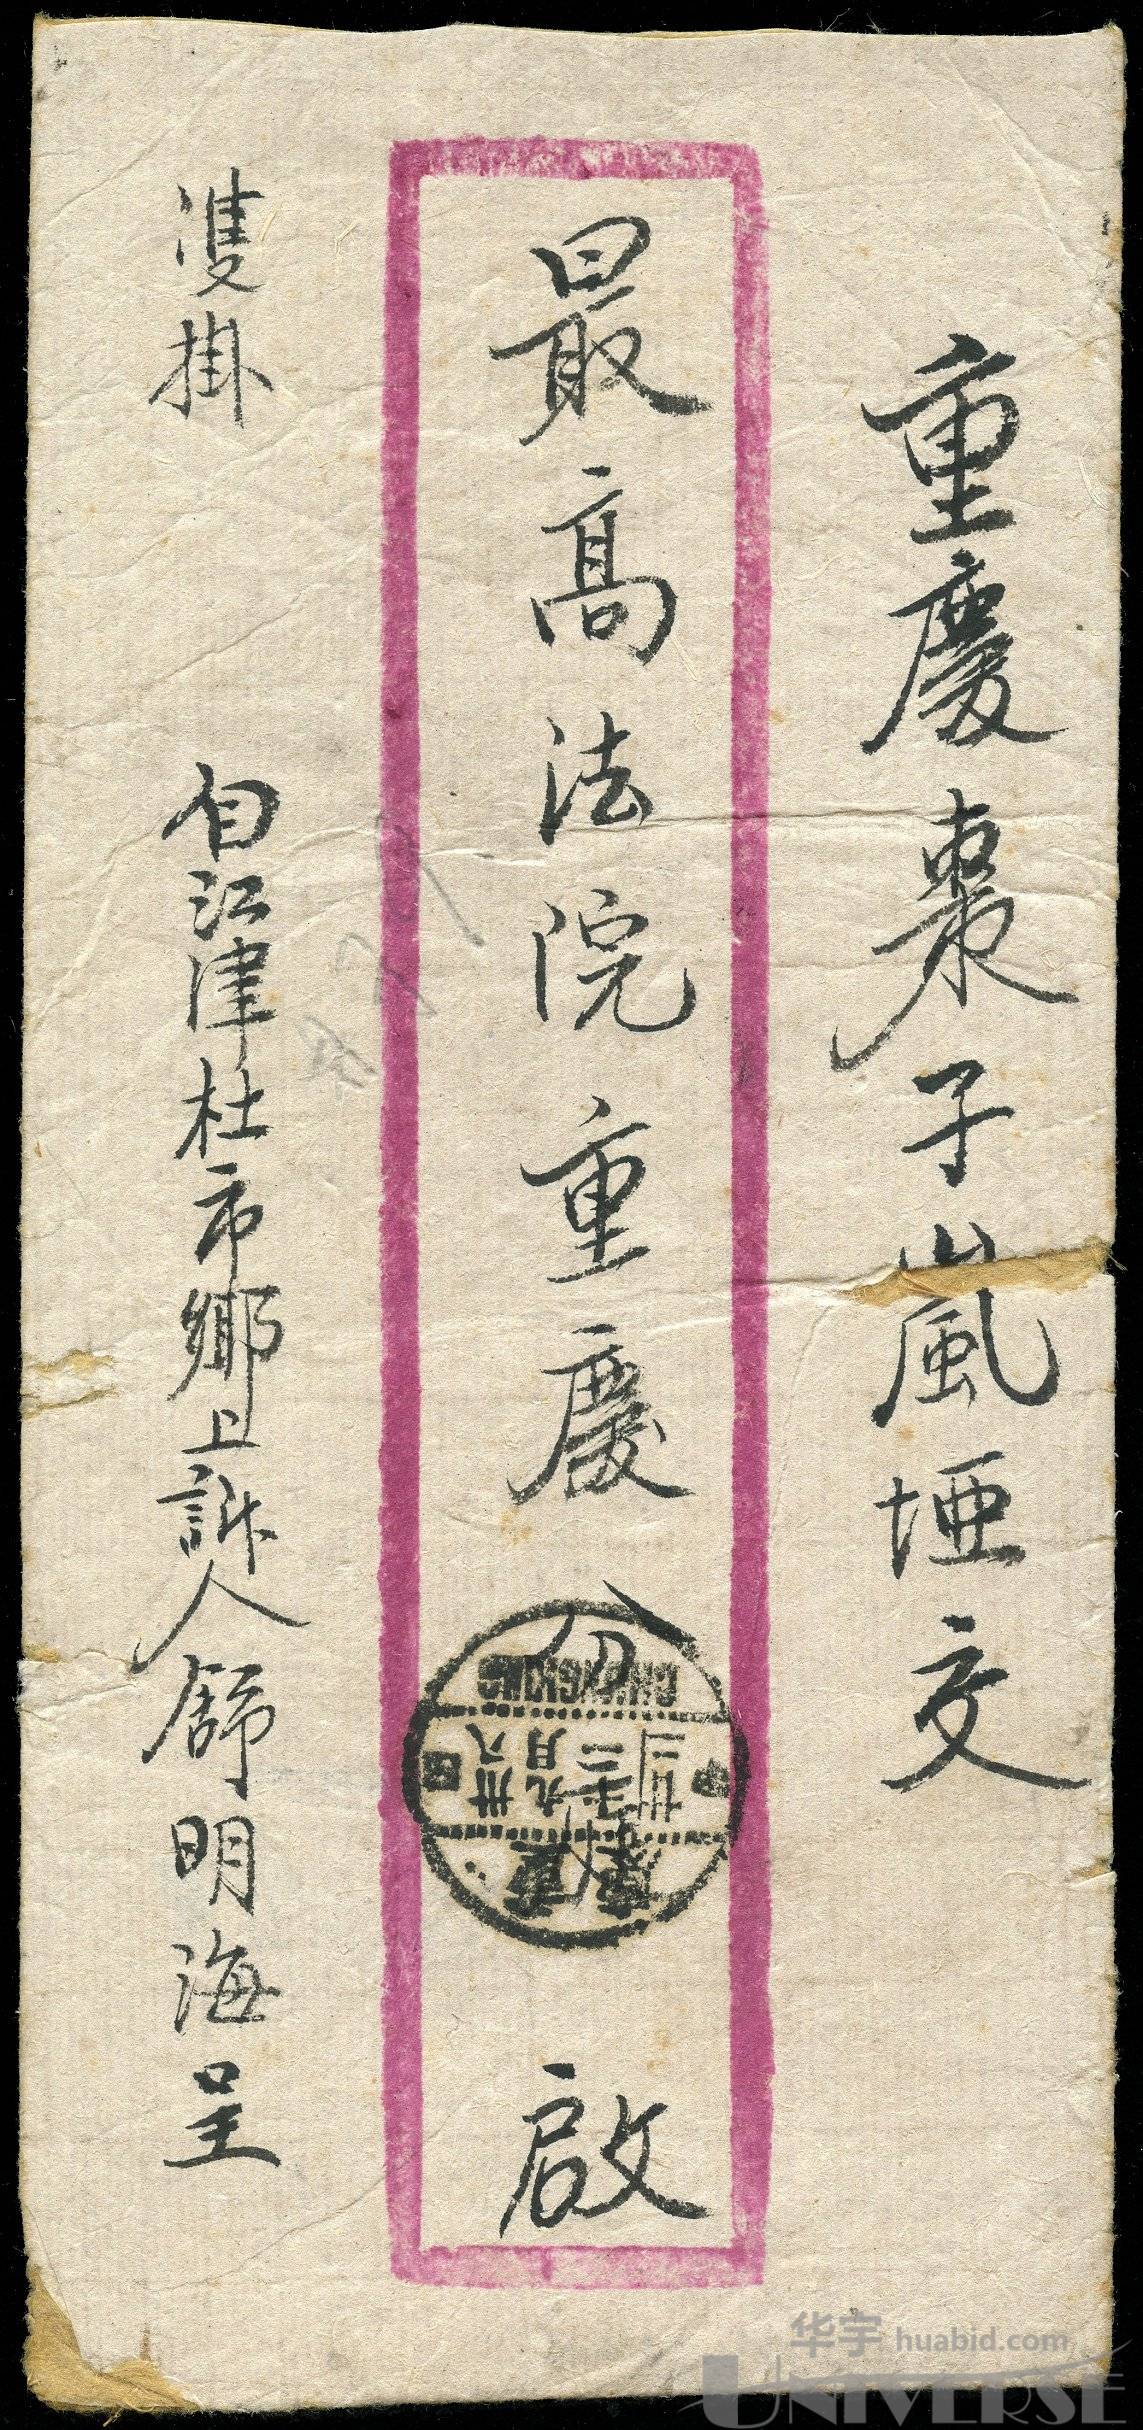 重慶棗子嵐埡交
最高法院重慶分庭 啟
雙掛
自江津杜市鄉上訴人舒明海呈
重慶
CHUNGKING
华宇 huabid.com
UNIVERSE